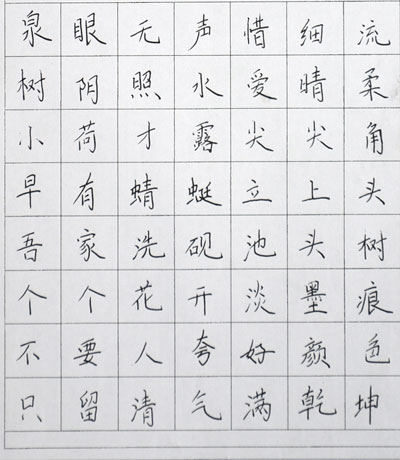 泉眼无声惜细流
树阴照水爱晴柔
小荷才露尖尖角
早有蜻蜓立上头
吾家洗砚池头树
个个花开淡墨痕
不要人夸好颜色
只留清气满乾坤